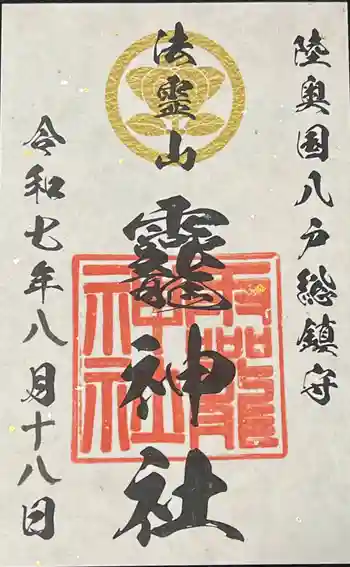 陸奥国八戸総鎮守
法霊山
龗神社
令和七年八月十八日
龗神社